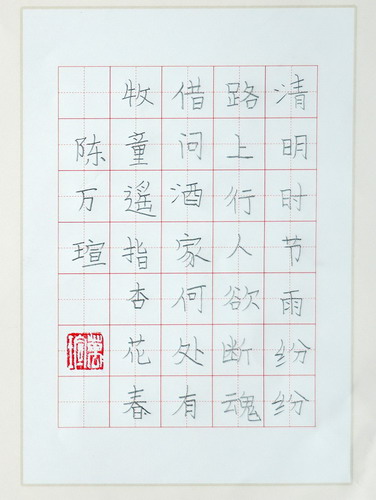 清明时节雨纷纷
路上行人欲断魂
借问酒家何处有
牧童遥指杏花春
陈万瑄